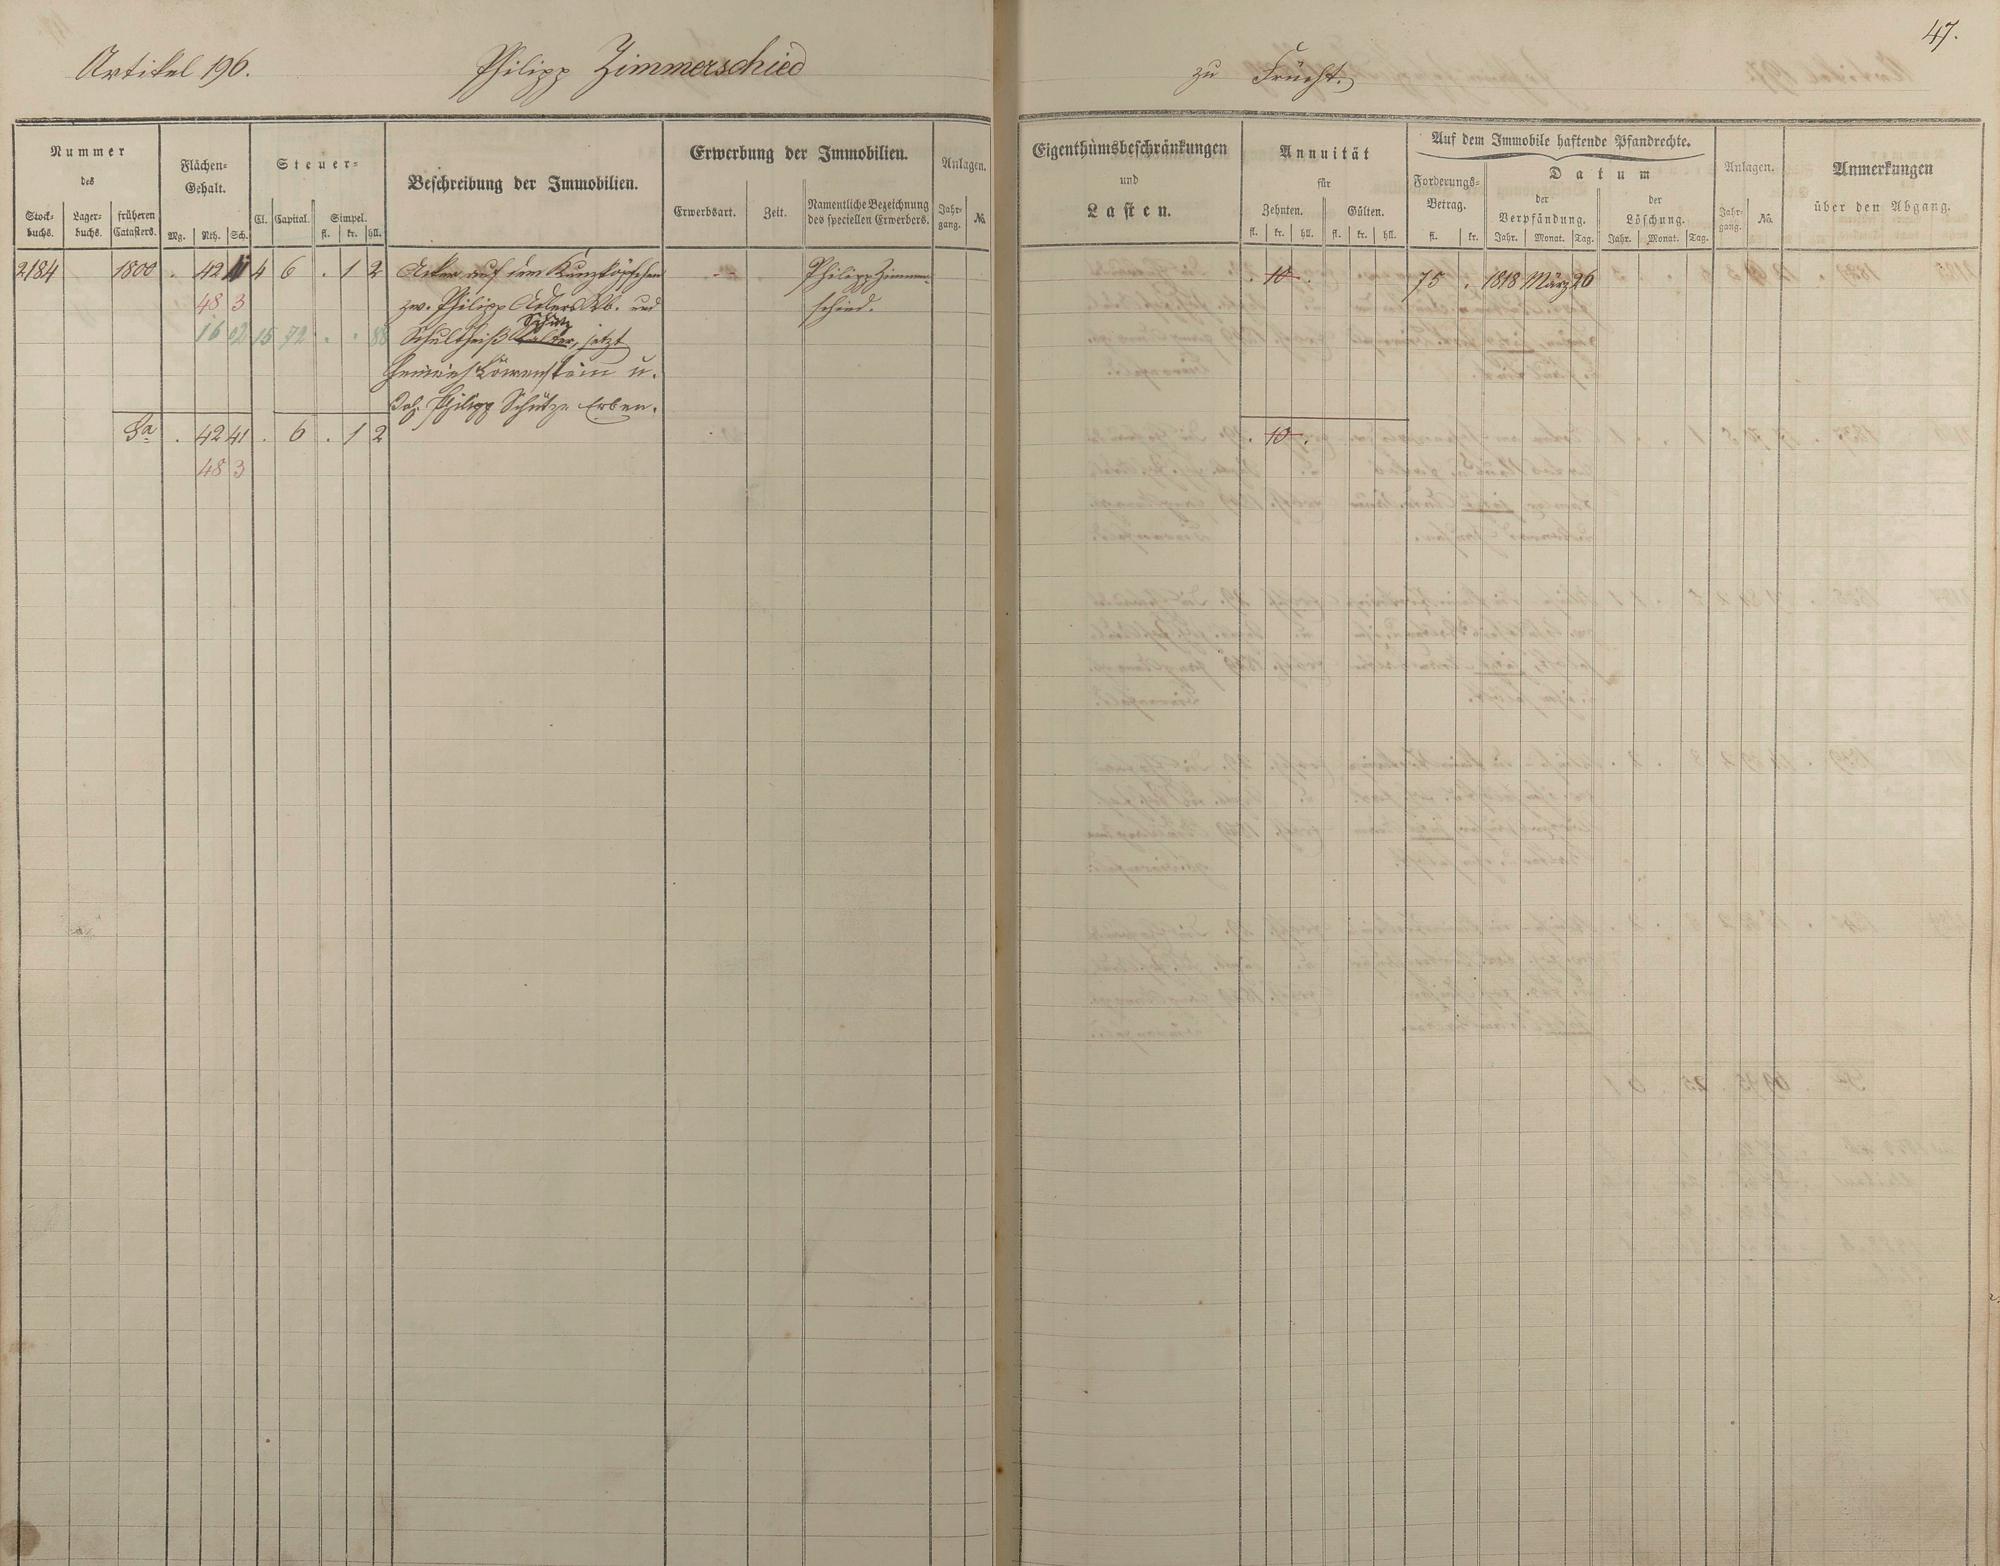 47.
Artikel 196. Philipp Zimmerschied zu Frücht.
Nummer
des
Stock-
buchs.
Lager-
buchs.
früheren
Catasters.
Flächen-
Gehalt.
Mg. Rth. Sch.
Steuer-
Cl. Capital. Simpel.
fl. kr. hll.
Beschreibung der Immobilien.
Erwerbung der Immobilien.
Erwerbsart. Zeit.
Namentliche Bezeichnung
des speciellen Erwerbers.
Anlagen.
Jahr-
gang.
No.
Eigenthumsbeschränkungen
und
Lasten.
Annuität
für
Zehnten. Gülten.
fl. kr. hll. fl. kr. hll.
Auf dem Immobile haftende Pfandrechte.
Forderungs-
Betrag.
fl. kr.
Datum
der
Verpfändung.
Jahr. Monat. Tag.
der
Löschung.
Jahr. Monat. Tag.
Anlagen.
Jahr-
gang.
No.
Anmerkungen
über den Abgang.
2184 1800 . 42 41 4 6 . 1 2 Acker auf dem Kunzköpfchen -- Philipp Zimmer- . 10 . 75 . 1818 März 26
48 3 zw. Philipp Adlers Wb. und schied.
Schütz
16 02 15 72 . . 88 Schultheiß jetzt
Heinrich Löwenstein u.
Joh. Philipp Schütz Erben.
Sa . 42 41 . 6 . 1 2 . 10 .
48 3